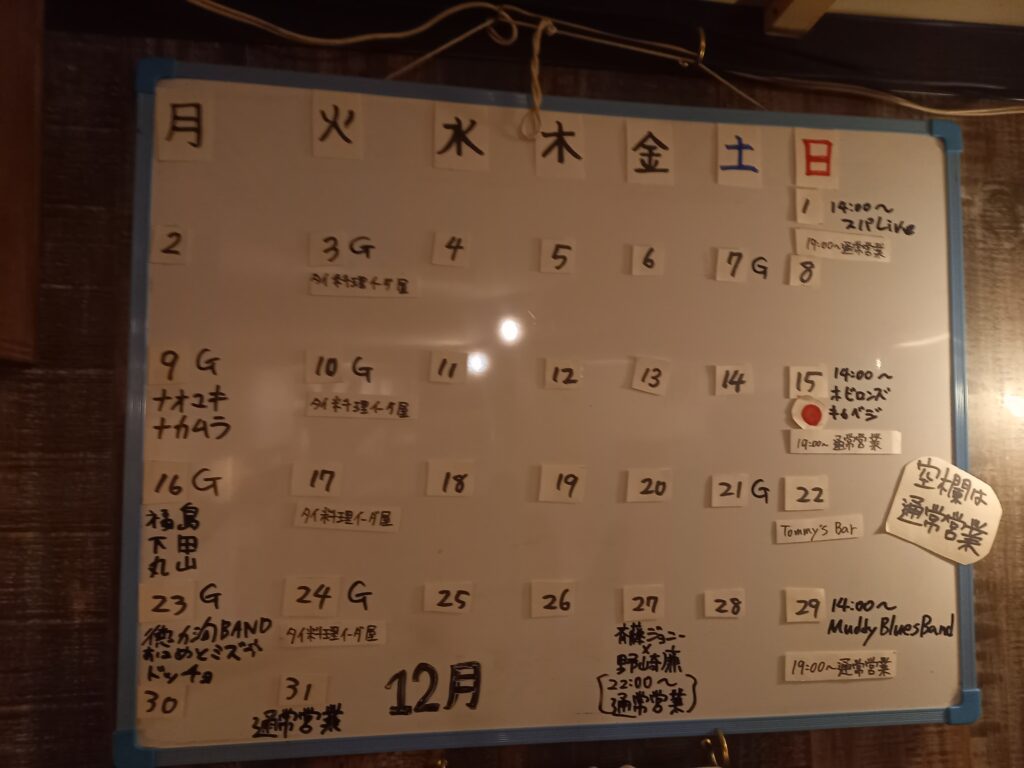 月 火 水 木 金 土 日
1 14:00～
スパLive
19:00～通常営業
2 3 G 4 5 6 7 G 8
タイ料理イーダ屋
9 G 10 G 11 12 13 14 15 14:00～
ナオユキ
ナカムラ
タイ料理イーダ屋
ホビロンズ
キムベジ
19:00～通常営業
16 G 17 18 19 20 21 G 22
福島
下田
丸山
タイ料理イーダ屋
Tommy's Bar
空欄は
通常営業
23 G 24 G 25 26 27 28 29 14:00～
BAND
ドッチョ
タイ料理イーダ屋
斉藤ジョニー
×
野崎廉
[22:00～
通常営業]
MuddyBluesBand
19:00～通常営業
30 31
通常営業
12月